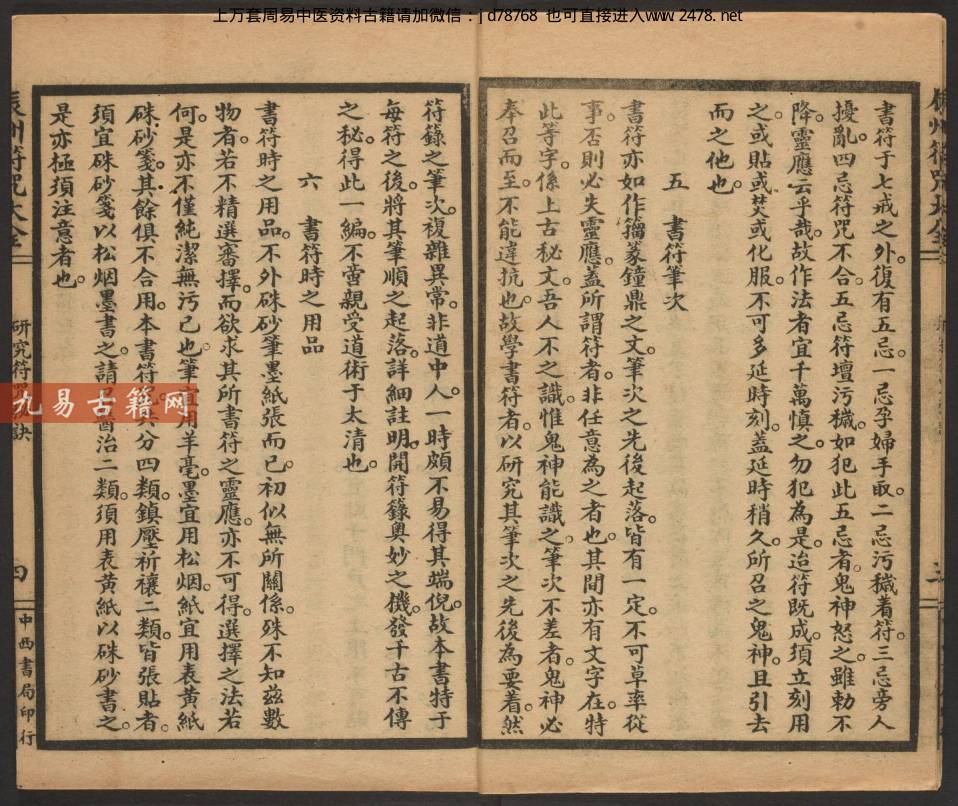 上万套周易中医资料古籍请加微信:jd78768 也可直接进入www.2478.net
書符于七戒之外。復有五忌。一忌孕婦手取。二忌污穢着符。三忌旁人
擾亂。四忌符咒不合。五忌符壇污穢。如犯此五忌者。鬼神怒之。雖勅不
降。靈應云乎哉。故作法者。宜千萬慎之。勿犯為是。迨符既成。須立刻用
之。或貼或焚或化服。不可多延時刻。蓋延時稍久。所召之鬼神。且引去
而之他也。
五 書符筆次
書符亦如作籀篆鐘鼎之文。筆次之先後起落。皆有一定。不可草率從
事。否則必失靈應。蓋所謂符者。非任意為之者也。其間亦有文字在。特
此等字。係上古秘文。吾人不之識。惟鬼神能識之。筆次不差者。鬼神必
奉召而至。不能違抗也。故學書符者。以研究其筆次之先後為要着。然
三
符籙之筆次。複雜異常。非道中人。一時頗不易得其端倪。故本書特于
每符之後。將其筆順之起落。詳細註明。開符籙奥妙之機。發千古不傳
之秘。得此一編。不啻親受道術于太清也。
六 書符時之用品
書符時之用品。不外硃砂筆墨紙張而已。初似無所關係。殊不知茲數
物者。若不精選審擇。而欲求其所書符之靈應。亦不可得。選擇之法若
何。是亦不僅純潔無污已也。筆宜用羊毫。墨宜用松烟。紙宜用表黄紙
硃砂箋。其餘俱不合用。本書符咒共分四類。鎮壓祈禳二類。皆張貼者。
須宜硃砂箋以松烟墨書之。請醫治二類。須用表黄紙以硃砂書之。
是亦極須注意者也。
辰州符咒大全
研究符咒秘訣
四
中西書局印行
九易古籍网